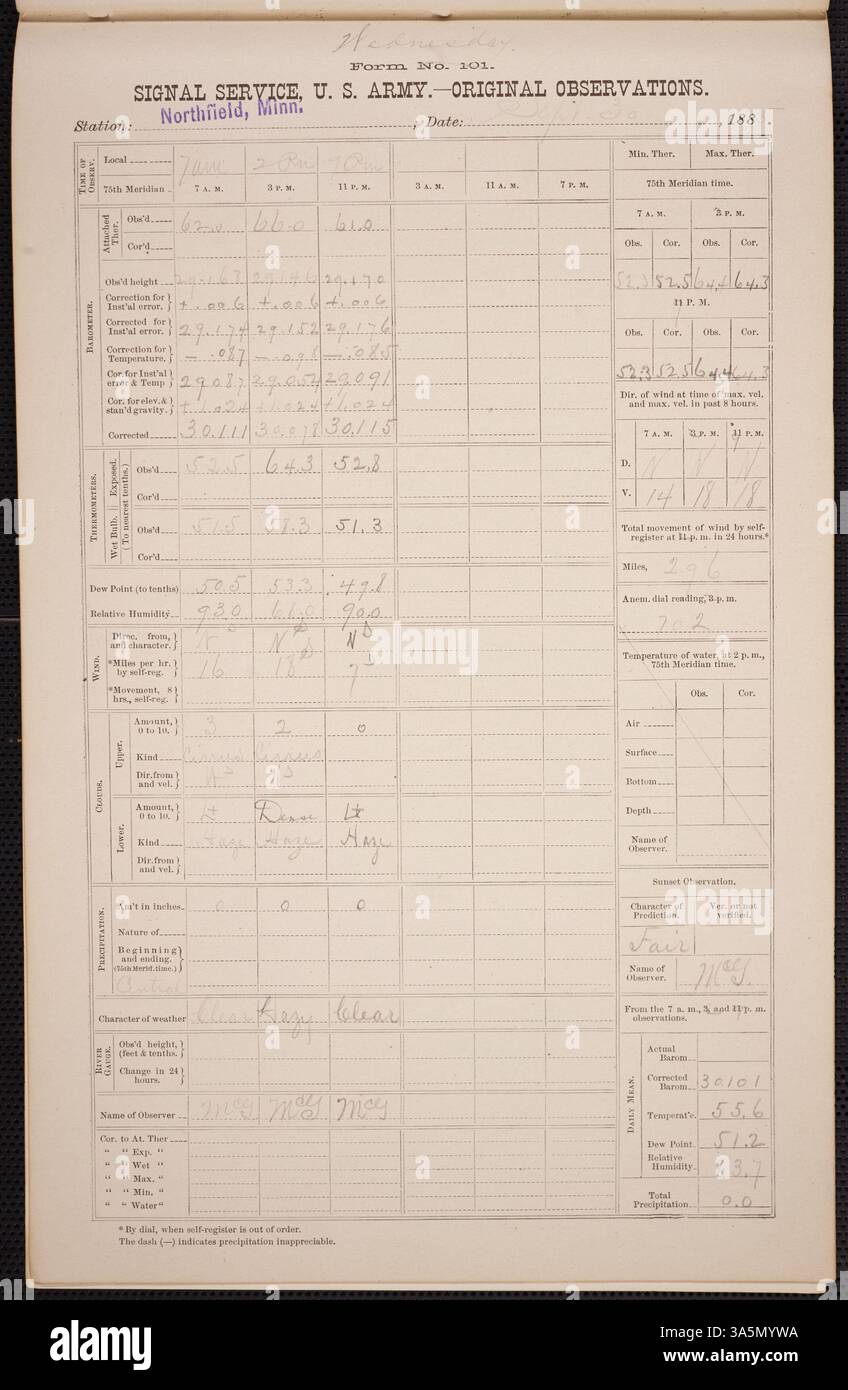 Wednesday.
Form No. 101.
SIGNAL SERVICE, U. S. ARMY.—ORIGINAL OBSERVATIONS.
Station: Northfield, Minn. , Date: , 188
TIME OF OBSERV.
Local 7am 2 Pm 9 Pm
75th Meridian 7 A. M. 3 P. M. 11 P. M. 3 A. M. 11 A. M. 7 P. M.
BAROMETER.
Attached Ther.
Obs'd 62.0 66.0 61.0
Cor'd
Obs'd height 29.168 29.146 29.170
Correction for Inst'al error. +.006 +.006 +.006
Corrected for Inst'al error. 29.174 29.152 29.176
Correction for Temperature. —.087 —.098 —.085
Cor. for Inst'al error & Temp 29.087 29.054 29.091
Cor. for elev. & stan'd gravity. +1.024 +1.024 +1.024
Corrected 30.111 30.078 30.115
THERMOMETERS.
Exposed. (To nearest tenths.)
Obs'd 52.5 64.3 52.8
Cor'd
Wet Bulb.
Obs'd 51.5 58.3 51.3
Cor'd
Dew Point (to tenths) 50.5 53.3 49.8
Relative Humidity 93.0 68.0 90.0
WIND.
Direc. from, and character. N N N
*Miles per hr. by self-reg. 16 18 7
*Movement, 8 hrs., self-reg.
CLOUDS.
Upper.
Amount, 0 to 10. 3 2 0
Kind Cirrus Cirrus
Dir. from and vel.
Lower.
Amount, 0 to 10. Lt Dense Lt
Kind Haze Haze Haze
Dir. from and vel.
PRECIPITATION.
Am't in inches. 0 0 0
Nature of
Beginning and ending.
(75th Merid. time.)
Central
Character of weather Clear Hazy Clear
RIVER GAUGE.
Obs'd height, (feet & tenths.)
Change in 24 hours.
Name of Observer McG McG McG
Cor. to At. Ther
" " Exp. "
" " Wet "
" " Max. "
" " Min. "
" " Water "
* By dial, when self-register is out of order.
The dash (—) indicates precipitation inappreciable.
Min. Ther. Max. Ther.
75th Meridian time.
7 A. M. 3 P. M.
Obs. Cor. Obs. Cor.
52.3 52.5 64.4 64.3
11 P. M.
Obs. Cor. Obs. Cor.
52.3 52.5 64.4 64.3
Dir. of wind at time of max. vel. and max. vel. in past 8 hours.
7 A. M. 3 P. M. 11 P. M.
D. N N N
V. 14 18 18
Total movement of wind by self-register at 11 p. m. in 24 hours.*
Miles, 296
Anem. dial reading, 3 p. m.
702
Temperature of water, at 2 p. m., 75th Meridian time.
Obs. Cor.
Air
Surface
Bottom
Depth
Name of Observer.
Sunset Observation.
Character of Prediction. Ver. or not verified.
Fair
Name of Observer. McG.
From the 7 a. m., 3, and 11 p. m. observations.
DAILY MEAN.
Actual Barom.
Corrected Barom. 30.101
Temperat'e. 55.6
Dew Point. 51.2
Relative Humidity.
Total Precipitation. 0.0
alamy
Image ID: 3A5MYWA
www.alamy.com